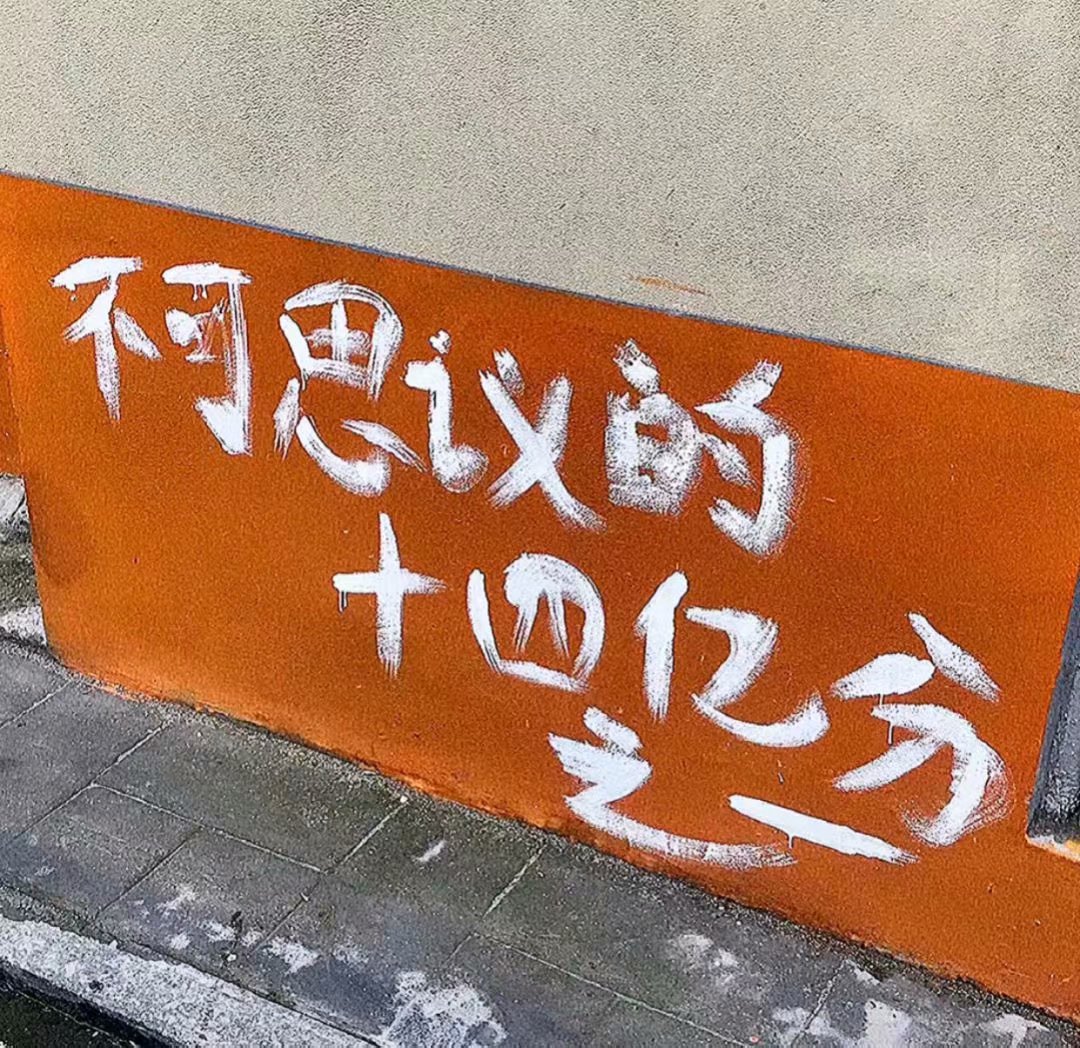 不可思议的
十四亿分
之一